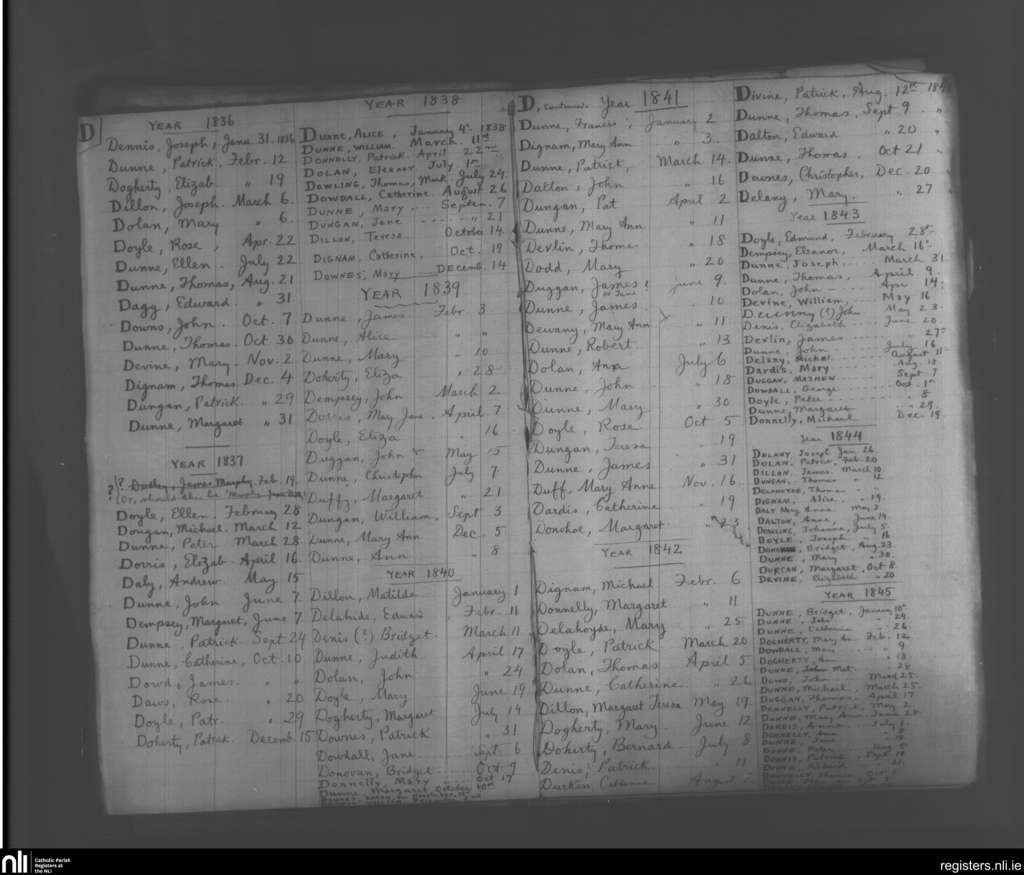 D
YEAR 1836
Dennis, Joseph, Jana. 31. 1836
Dunne, Patrick, Febr. 12
Dogherty, Elizab. " 19
Dillon, Joseph. March 6.
Dolan, Mary " 6.
Doyle, Rose, Apr. 22
Dunne, Ellen. July 22
Dunne, Thomas, Aug. 21
Dagg, Edward. " 31
Downs, John. Oct. 7
Dunne, Thomas. Oct. 30
Devine, Mary. Nov. 2
Dignam, Thomas Dec. 4
Dungan, Patrick. " 29
Dunne, Margaret " 31
YEAR 1837
?? Dudley, James Murphy Feb. 19
(Or, should this be
Doyle, Ellen. February 28
Dougan, Michael. March 12
Dunne, Peter March 28
Dorris, Elizab. April 16
Daly, Andrew. May. 15
Dunne, John June 7
Dempsey, Margaret, June 7
Dunne, Patrick. Sept. 24
Dunne, Catherine, Oct. 10
Dowd, James. " "
Daws, Rose. " 20
Doyle, Patr. " 29
Doherty, Patrick. Decemb. 15
YEAR 1838
DUANE, ALICE, January 4th. 1838
DUNNE, WILLIAM. March. 11th
DONNELLY, Patrick. April 22nd
DOLAN, Eleanor. July 1st
DOWLING, Thomas, Mark. July 24.
DOWDALL, Catherine. August 26
DUNNE, Mary. Septem. 7
DUNGAN, Jane " 21
DILLAN, Teresa October 14.
DIGNAM, Catherine, Oct. 19
DOWNES, Mary DECEMB. 14
YEAR 1839
Dunne, James Febr. 3
Dunne, Alice " "
Dunne, Mary " 10
Doherty, Eliza " 28
Dempsey, John March 2
Dorris, Mary Jane. April 7
Doyle, Eliza " 16
Duggan, John May 15
Dunne, Christoph July 7
Duffy, Margaret " 21
Dungan, William, Sept 3
Dunne, Mary Ann Dec. 5
Dunne, Ann " 8
YEAR 1840
Dillon, Matilda January 1
Delahide, Edward Febr. 11
Denis (?) Bridget. March 11
Dunne, Judith April 17
Dolan, John " 24
Doyle, Mary June 19
Dogherty, Margaret July 14
Downes, Patrick " 31
Dowdall, Jane Sept. 6
Donovan, Bridget Oct. 9
Donnelly, Mary Oct 17
Dunne, Margaret October 30th
D, Continues. Year 1841
Dunne, Francis, January 2
Dignam, Mary Ann " 3.
Dunne, Patrick March 14.
Dalton, John " 16
Dungan, Pat April 2
Dunne, Mary Ann " 11
Devlin, Thoma " 18
Dodd, Mary " 20
Duggan, James? June 9.
or Jane
Dunne, James. " 10
Dewany, Mary Ann " 11
Dunne, Robert " 13
Dolan, Ann July 6
Dunne, John " 18
Dunne, Mary " 30
Doyle, Rose Oct 5
Dungan, Teresa " 19
Dunne, James " 31
Duff, Mary Anne Nov. 16.
Dardis, Catherine " 19
Donohoe, Margaret " 23
YEAR 1842
Dignam, Michael Febr. 6
Donnelly, Margaret " 11
Delahoyde, Mary " 25
Doyle, Patrick March 20
Dolan, Thomas April 5
Dunne, Catherine " 26
Dillon, Margaret Teresa May 19.
Dogherty, Mary June 12
Doherty, Bernard July 8
Denis, Patrick " 11
Durkan, Catherine August 7
Divine, Patrick, Aug. 12th
Dunne, Thomas, Sept. 9 "
Dalton, Edward " 20 "
Dunne, Thomas. Oct 21 "
Downes, Christopher, Dec. 20
Delany, Mary. " 27
Year 1843
Doyle, Edmund, February 28th
Dempsey, Eleanor, March 16th
Dunne, Joseph. March 31
Dunne, Thomas April 9
Dolan, John Apr. 14
Devine, William, May 16
(?) John May 23.
Denis, Elizabeth June 20
Devlin, James 27th
Dunne, John July 16
Delany, Michael August 11
Dardis, Mary Aug. 13
DUGGAN, MATHEW Sept. 7
DOWDALL, George Oct. 1st
Doyle, Peter " 8
Dunne, Margaret " 29
Donnelly, Michael Dec. 19
Year 1844
DELANY, Joseph Jan 26.
DOLAN, Patrick, Feb. 20
DILLON, James. March 10.
DUNGAN, Thomas " 12
DELAHOYDE, Thomas " "
DIGNAM, Alice " 19.
DALY, Mary Anne May 3
DALTON, Anne, June 14.
DOWLING, Johanna, July 5
DOYLE, Joseph " 16
Bridget, Aug. 23
DUNNE, Mary " 30.
DURCAN, Margaret, Oct 8.
DEVINE, Elizabeth " 20
YEAR 1845
DUNNE, Bridget, January 10th
DUNNE, John " 24.
DUNNE, Catherine " 26
DOGHERTY, Mary Feb. 12
DOWDALL, Mary " 9
DOGHERTY, Ann " 18
DUNNE, John " 28
DOWD, John March 25.
DUNNE, Michael, March 25.
DUGGAN, Thomas, April 17
DONNELLY, Patrick, May 2
DUNNE, Mary Anne
DONNELLY, Ann
DUNNE, Jane
nli
Catholic Parish
Registers at
the NLI
registers.nli.ie